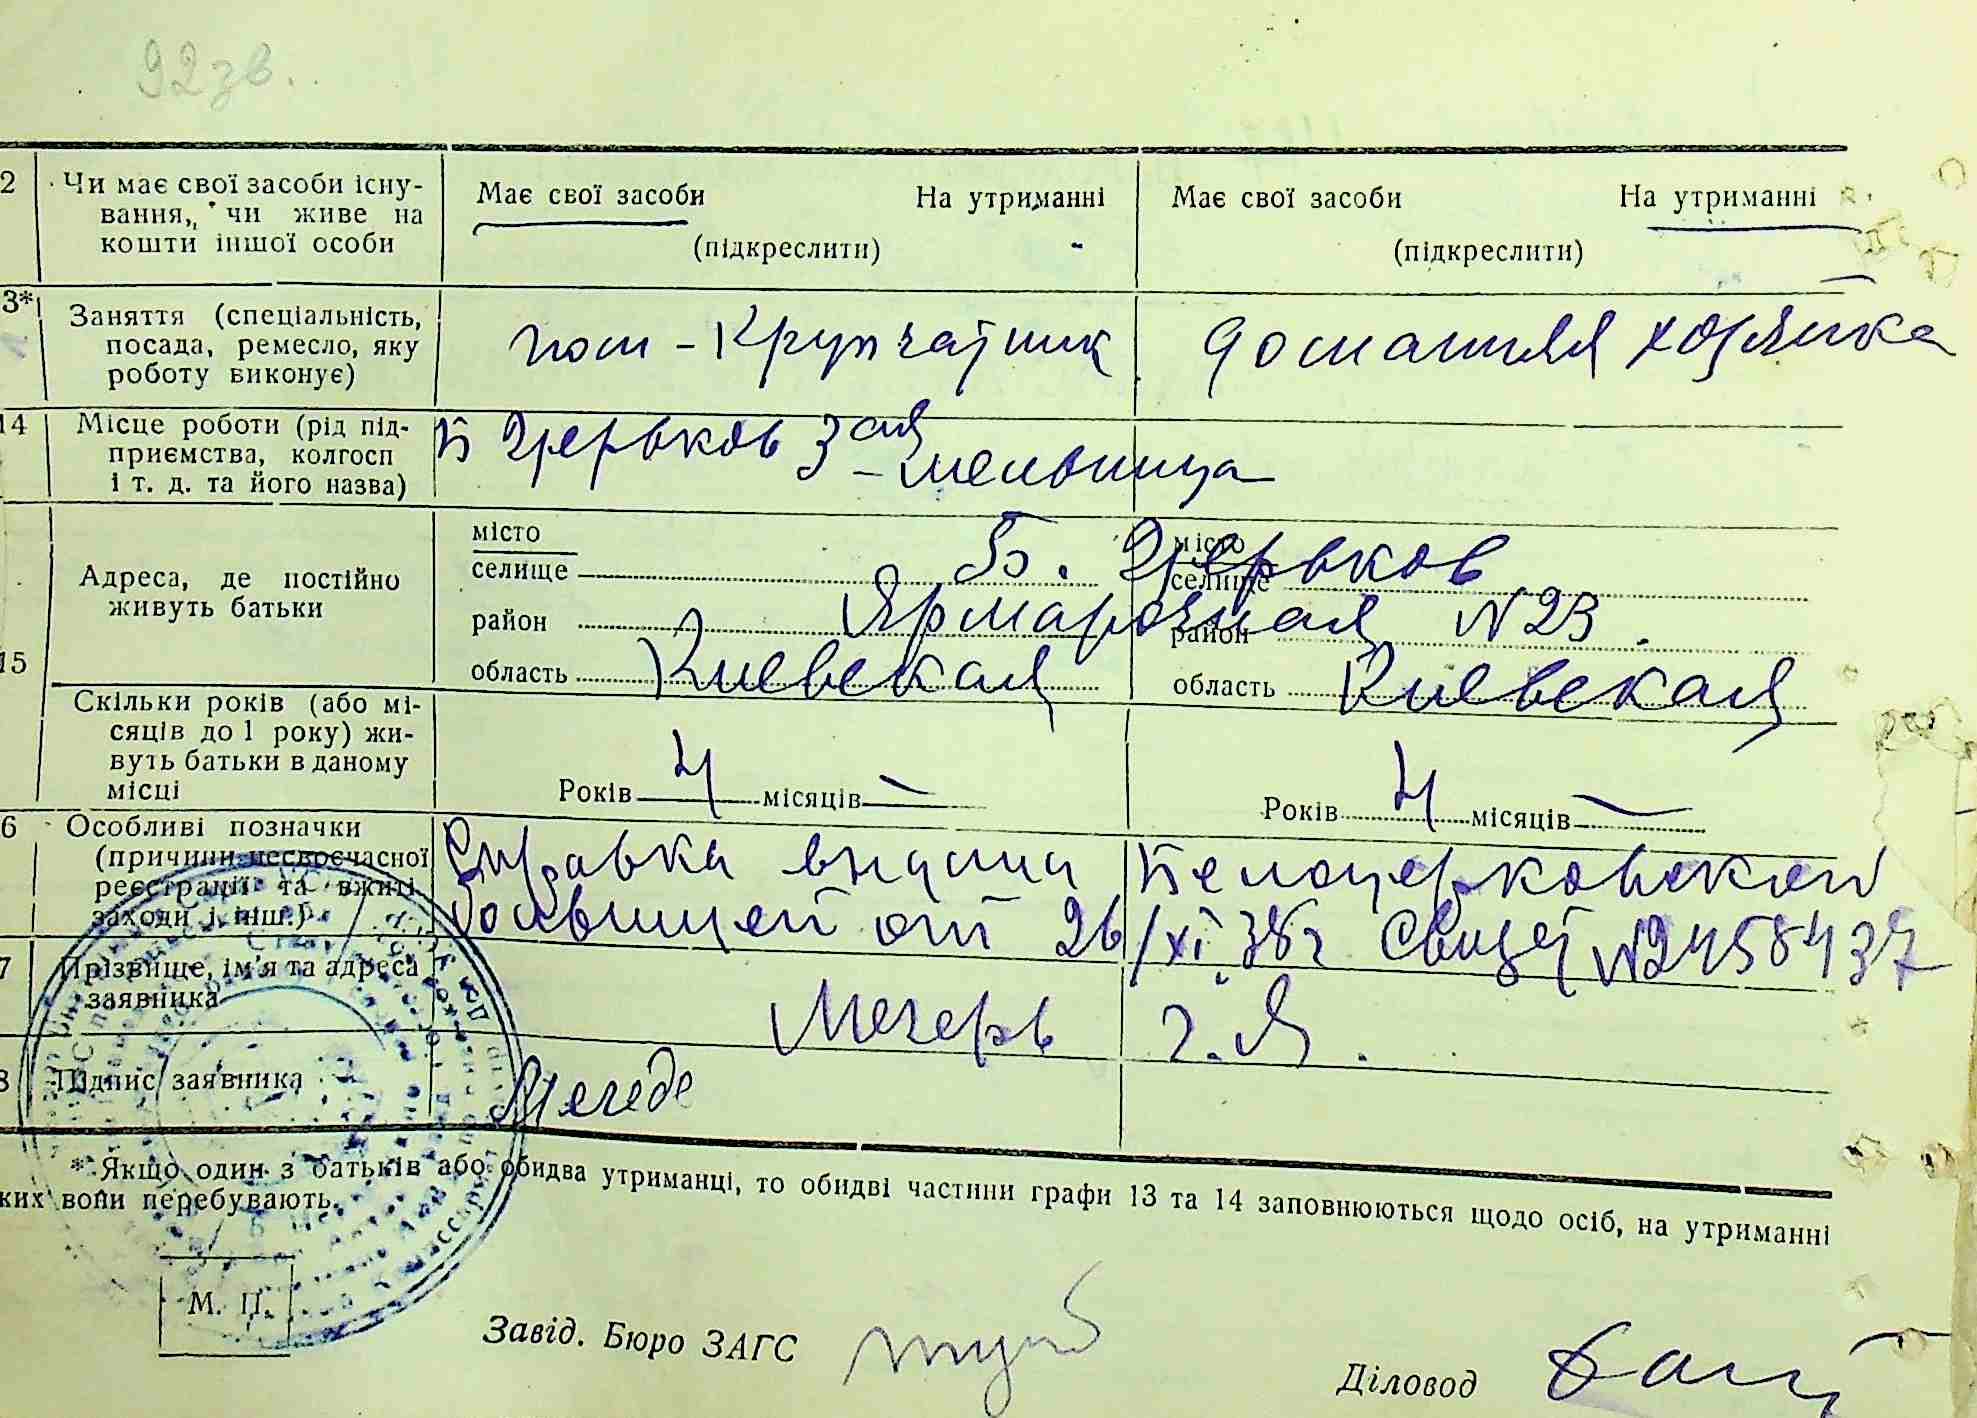 92зв.
2 Чи має свої засоби існу- Має свої засоби На утриманні Має свої засоби На утриманні
вання, чи живе на
кошти іншої особи (підкреслити) (підкреслити)
3* Заняття (спеціальність,
посада, ремесло, яку пом-Крупчатник домашняя хозяйка
роботу виконує)
14 Місце роботи (рід під- Б Церьков 3ая мельница
приємства, колгосп
і т. д. та його назва)
місто місто
селище Б. Церьков селище
Адреса, де постійно
живуть батьки
район Ярмарочная №23. район
15 область Киевская область Киевская
Скільки років (або мі-
сяців до 1 року) жи-
вуть батьки в даному
місці Років 4 місяців — Років 4 місяців —
6 Особливі позначки Справка выдана Белоцерковской
(причини несвоєчасної
реєстрації та вжиті больницей от 26/XI 38г Свидет №2458437
заходи і інш.)
7 Прізвище, ім'я та адреса
заявника Мечерь Г. Я.
8 Підпис заявника
* Якщо один з батьків або обидва утриманці, то обидві частини графи 13 та 14 заповнюються щодо осіб, на утриманні
ких вони перебувають.
М. П.
Завід. Бюро ЗАГС
Діловод